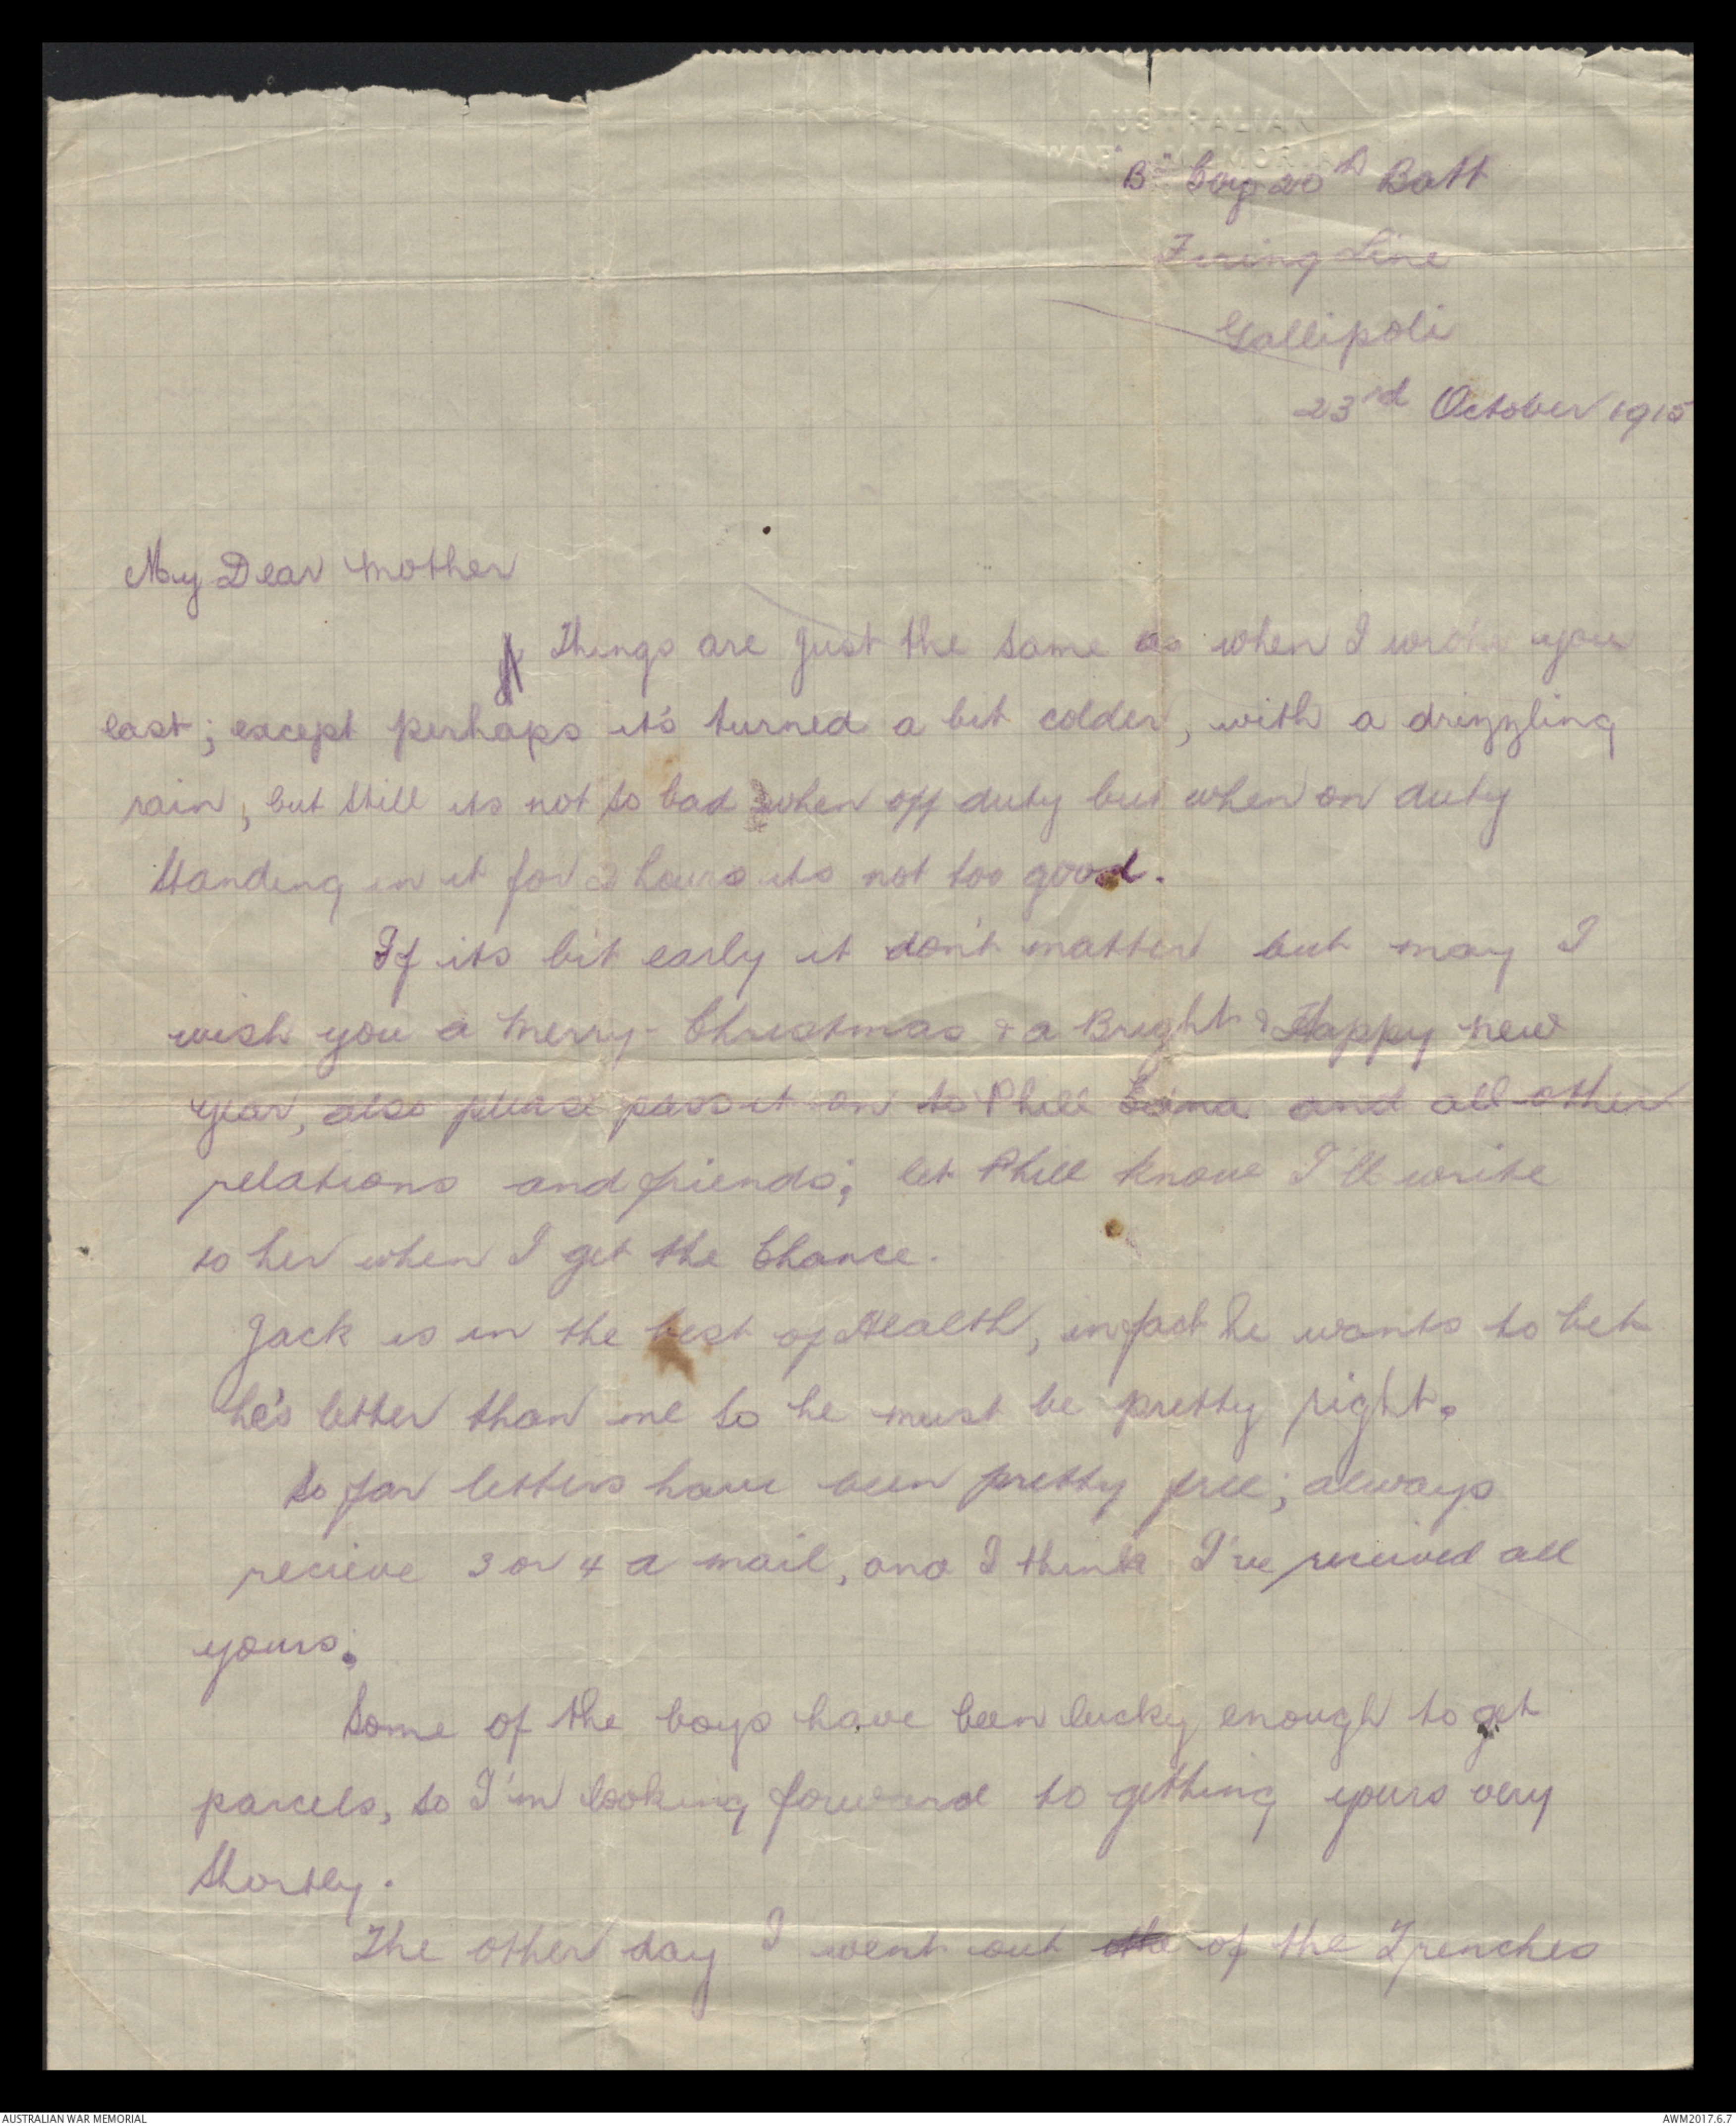 "B" Coy 20th Batt
Firing Line
Gallipoli
23rd October 1915
My Dear Mother
Things are just the same as when I wrote you
last; except perhaps it's turned a bit colder, with a drizzling
rain, but still its not so bad when off duty but when on duty
standing in it for 2 hours its not too good.
If its bit early it don't matter but may I
wish you a Merry Christmas & a Bright & Happy New
Year, also please pass it on to Phill Edna and all other
relations and friends; let Phill know I'll write
to her when I get the Chance.
Jack is in the best of Health, in fact he wants to bet
he's better than me so he must be pretty right.
So far letters have been pretty free; always
recieve 3 or 4 a mail, and I think I've received all
yours.
Some of the boys have been lucky enough to get
parcels, so I'm looking forward to getting yours very
shortly.
The other day I went out of the Trenches
AUSTRALIAN WAR MEMORIAL
AWM2017.6.7